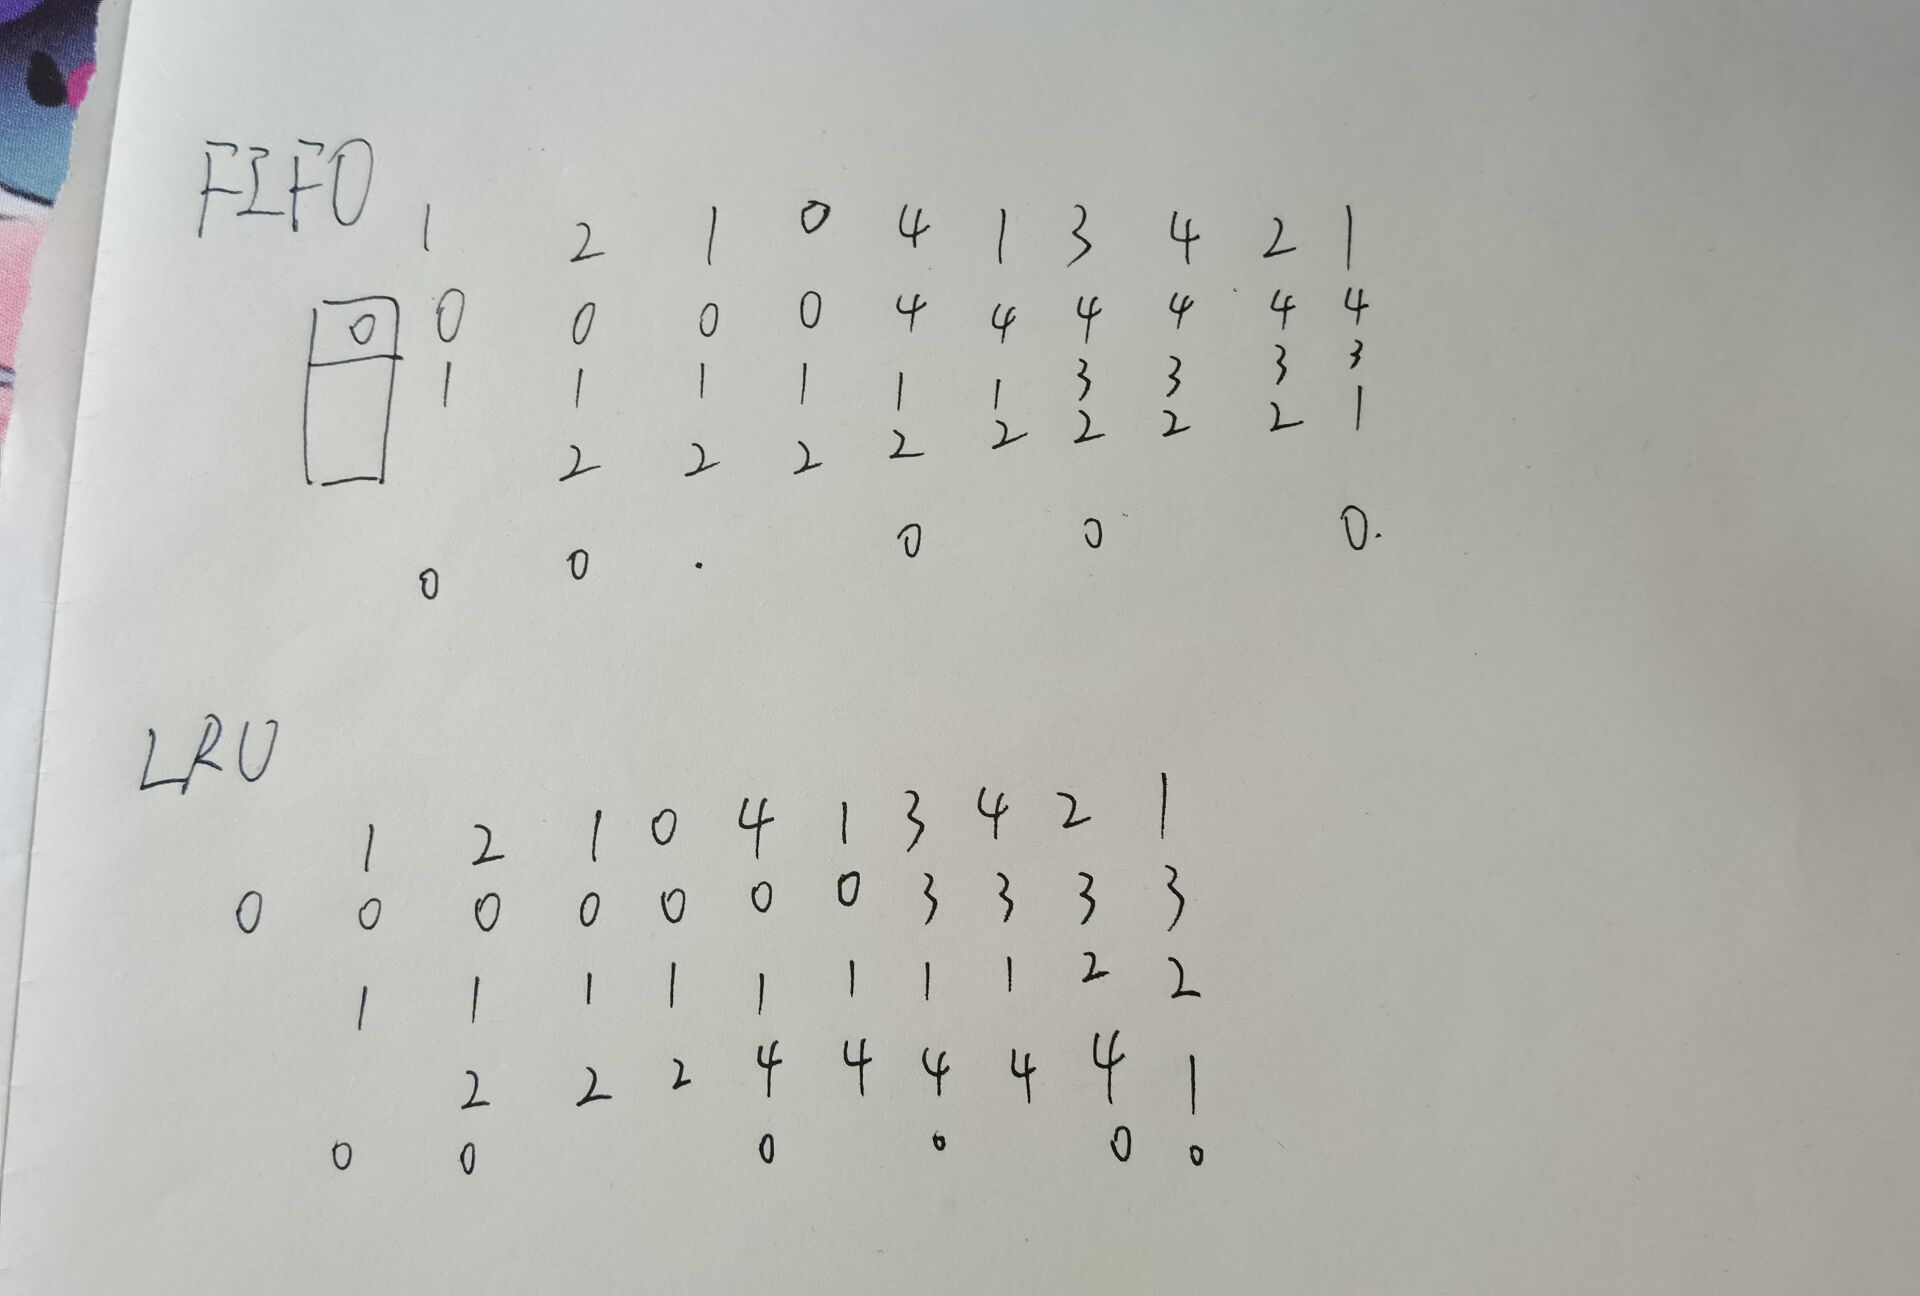 FIFO
1 2 1 0 4 1 3 4 2 1
0 0 0 0 0 4 4 4 4 4 4
1 1 1 1 1 1 3 3 3 3
2 2 2 2 2 2 2 2 1
0 0 . 0 0 0.
LRU
1 2 1 0 4 1 3 4 2 1
0 0 0 0 0 0 0 3 3 3 3
1 1 1 1 1 1 1 1 2 2
2 2 2 4 4 4 4 4 1
0 0 0 0 0 0